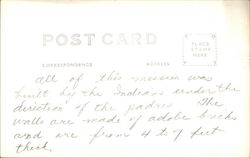 POST CARD
CORRESPONDENCE
ADDRESS
PLACE
STAMP
HERE
all of this mission was
built by the Indians under the
direction of the padres. The
walls are made of adobe bricks
and are from 4 to 7 feet
thick.